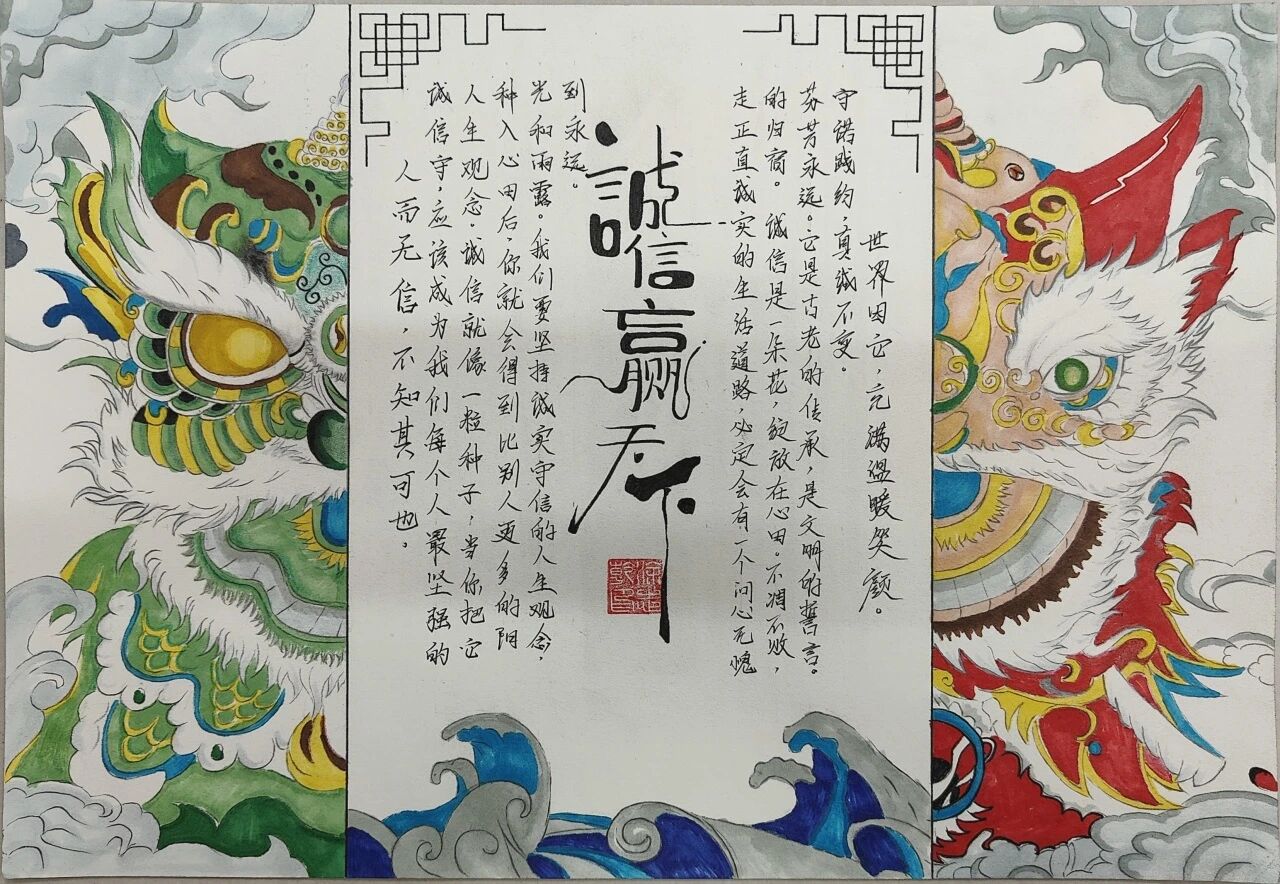 人而无信，不知其可也。
诚信守，应该成为我们每个人最坚强的
人生观念。诚信就像一粒种子，当你把它
种入心田后，你就会得到比别人更多的阳
光和雨露。我们要坚持诚实守信的人生观念，
到永远。
誠信赢天下
走正直诚实的生活道路，必定会有一个问心无愧
的归宿。诚信是一朵花，绽放在心田。不凋不败，
芬芳永远。它是古老的传承，是文明的誓言。
守诺践约，真诚不变。
世界因它，充满温暖笑颜。